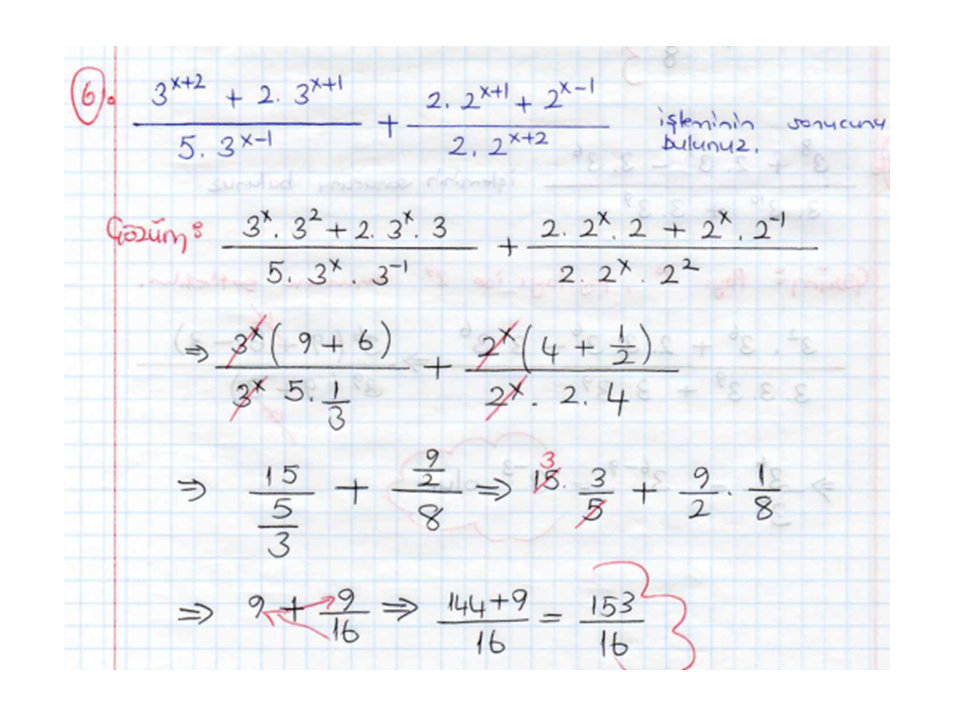 6. (3^(x+2) + 2. 3^(x+1))/(5. 3^(x-1)) + (2. 2^(x+1) + 2^(x-1))/(2. 2^(x+2)) işleminin sonucunu
bulunuz.
Çözüm: (3^x. 3^2 + 2. 3^x. 3)/(5. 3^x. 3^-1) + (2. 2^x. 2 + 2^x. 2^-1)/(2. 2^x. 2^2)
⇒ (3^x(9 + 6))/(3^x 5. 1/3) + (2^x(4 + 1/2))/(2^x. 2. 4)
⇒ 15/(5/3) + (9/2)/8 ⇒ 3 15. 3/5 + 9/2 . 1/8
⇒ 9 + 9/16 ⇒ (144+9)/16 = 153/16